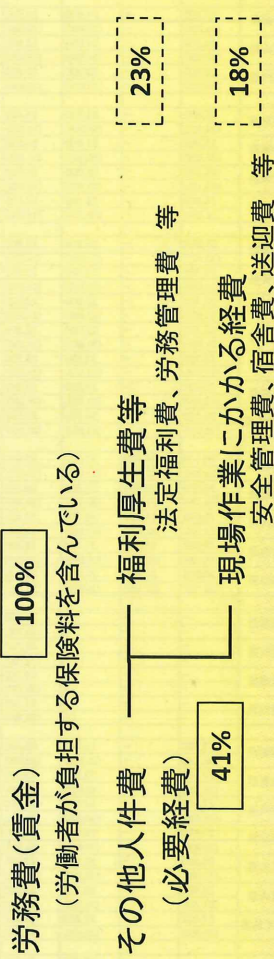 労務費(賃金)
100%
(労働者が負担する保険料を含んでいる)
その他人件費
(必要経費)
41%
福利厚生費等
23%
法定福利費、労務管理費 等
現場作業にかかる経費
18%
安全管理費、宿舎費、送迎費 等